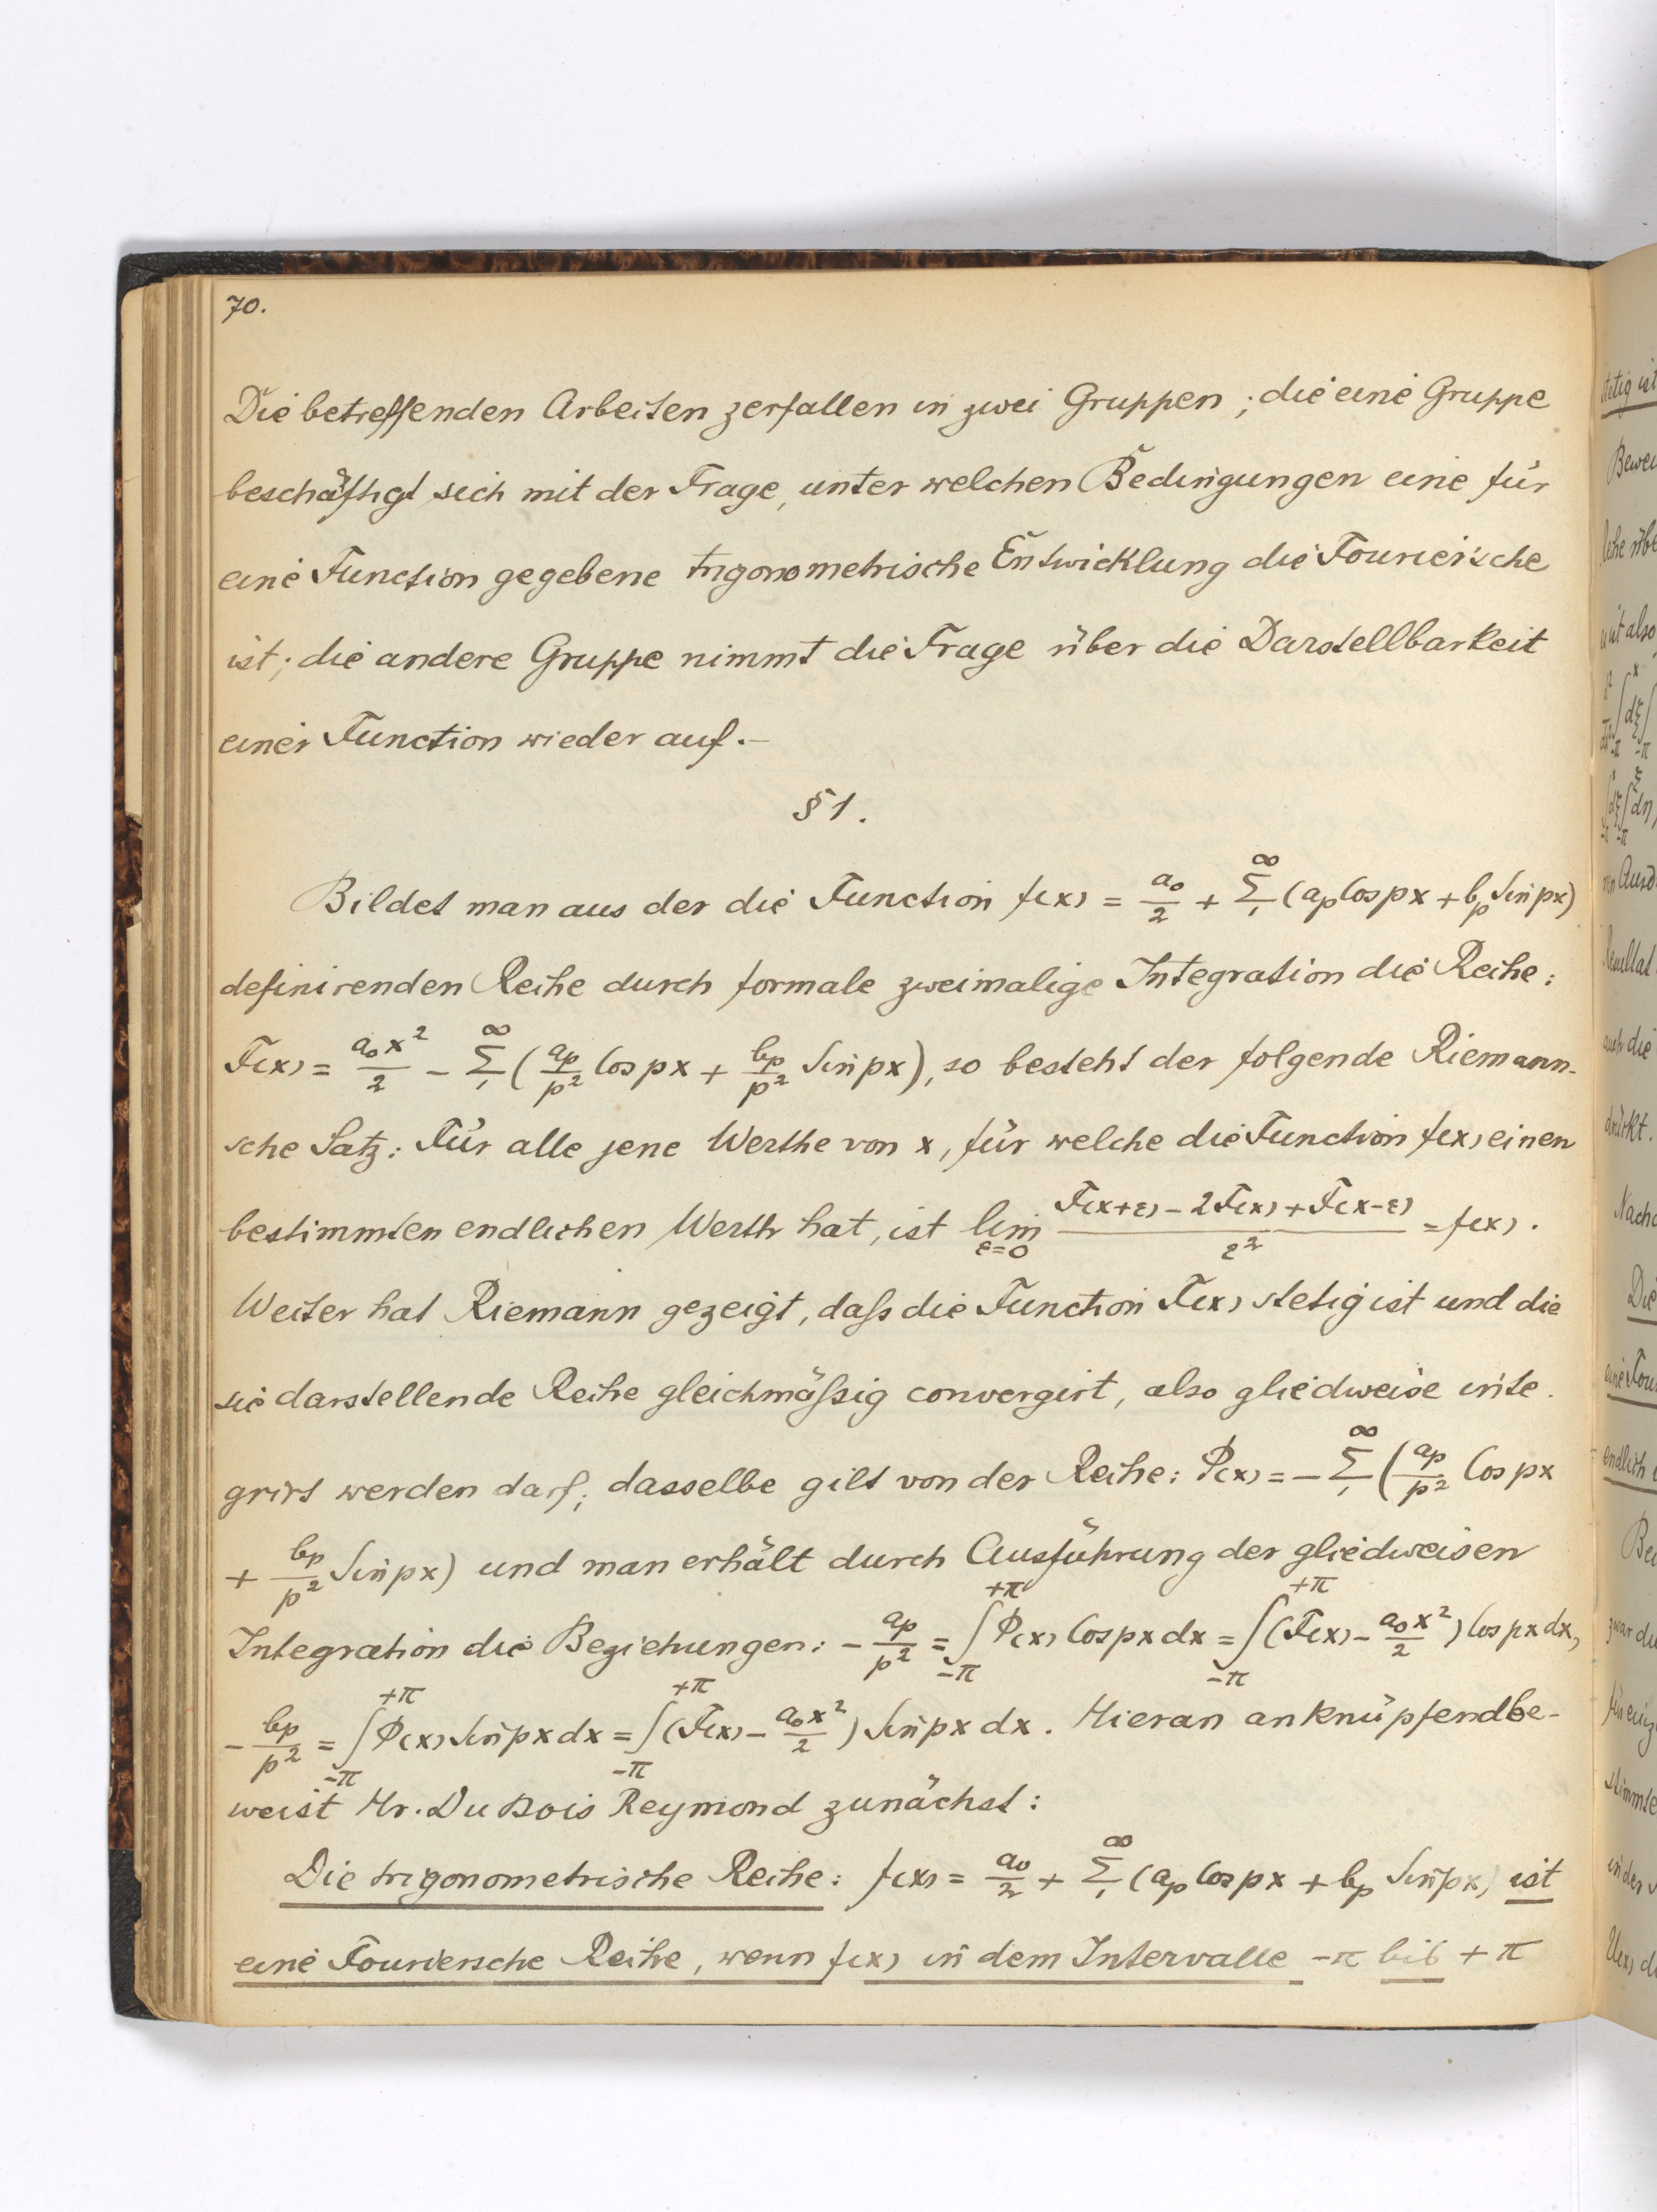 70.
Die betreffenden Arbeiten zerfallen in zwei Gruppen; die eine Gruppe
beschäftigt sich mit der Frage, unter welchen Bedingungen eine für
eine Function gegebene trigonometrische Entwicklung die Fourier'sche
ist; die andere Gruppe nimmt die Frage über die Darstellbarkeit
einer Function wieder auf.—
§ 1.
Bildet man aus der die Function f(x) = a₀/2 + Σ₁^∞ (aₚ Cos px + bₚ Sin px)
definirenden Reihe durch formale zweimalige Integration die Reihe:
F(x) = a₀x²/2 − Σ₁^∞ (aₚ/p² Cos px + bₚ/p² Sin px), so besteht der folgende Riemann-
sche Satz: Für alle jene Werthe von x, für welche die Function f(x) einen
bestimmten endlichen Werth hat, ist lim ε=0 (F(x+ε) − 2F(x) + F(x−ε))/ε² = f(x).
Weiter hat Riemann gezeigt, daſs die Function F(x) stetig ist und die
sie darstellende Reihe gleichmäſsig convergirt, also gliedweise inte-
grirt werden darf; dasselbe gilt von der Reihe: Φ(x) = − Σ₁^∞ (aₚ/p² Cos px
+ bₚ/p² Sin px) und man erhält durch Ausführung der gliedweisen
Integration die Beziehungen: − aₚ/p² = ∫₋π^+π Φ(x) Cos px dx = ∫₋π^+π (F(x) − a₀x²/2) Cos px dx,
− bₚ/p² = ∫₋π^+π Φ(x) Sin px dx = ∫₋π^+π (F(x) − a₀x²/2) Sin px dx. Hieran anknüpfend be-
weist Hr. Du Bois Reymond zunächst:
Die trigonometrische Reihe: f(x) = a₀/2 + Σ₁^∞ (aₚ Cos px + bₚ Sin px) ist
eine Fouriersche Reihe, wenn f(x) in dem Intervalle −π bis +π